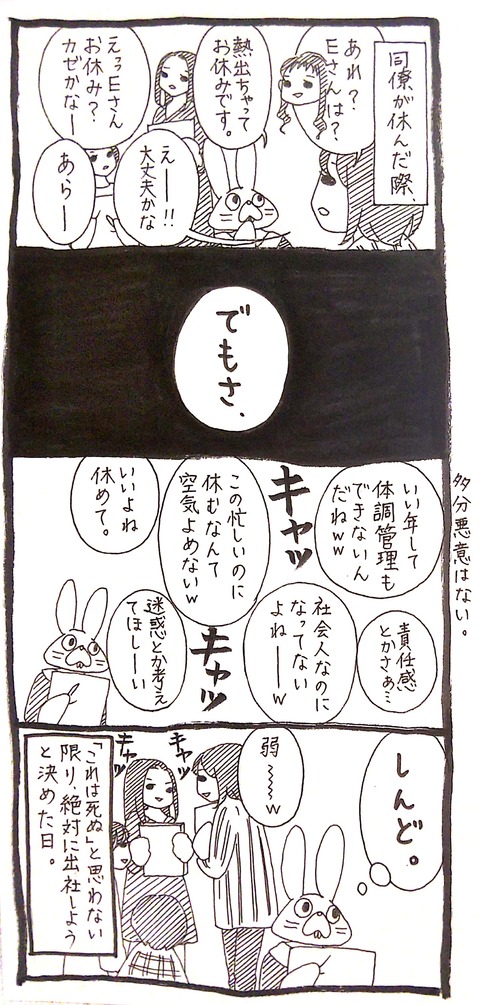 同僚が休んだ際、
あれ？
Eさんは？
熱出ちゃって
お休みです。
えっEさん
お休み？
カゼかなー
えー!!
大丈夫かな
あらー
でもさ、
多分悪意はない。
いい年して
体調管理も
できないん
だねww
キャッ
この忙しいのに
休むなんて
空気よめないw
いいよね
休めて。
責任感
とかさぁ…
社会人なのに
なってない
よねーw
キャッ
迷惑とか考え
てほしーい
しんど。
弱
〜〜〜w
キャッ
キャッ
「これは死ぬ」と思わない
限り、絶対に出社しよう
と決めた日。